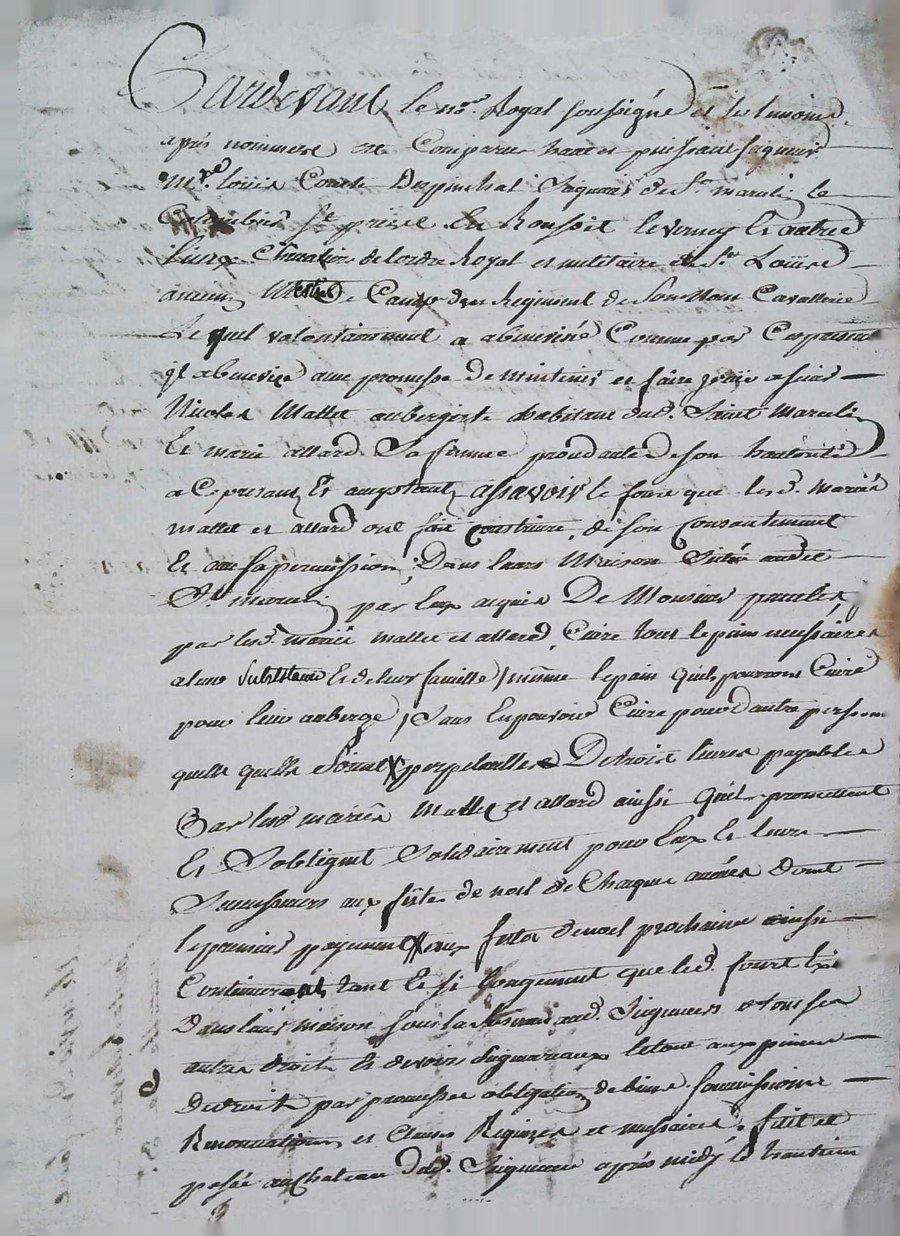 Pardevant le no.re Royal soussigné et les temoins
après nommes est Comparu haut et puissant seigneur
M.re louis Comte Despinchal Seigneur de S.t marcelin le
S.t priest En Rousset leverney Et autres
lieux Chevalier de lordre Royal et militaire de S.t Louis
ancien Mestre de Camp dun Regiment de son nom Cavallerie
Lequel volontairement a abenevisé Comme par Ces presentes
il abenevise avec promesse de maintenir et faire jouir a sieur
Nicolas Mallet aubergiste habitant dud. Saint Marcelin
Et marie allard Sa femme procedante de son hautorité
a Ce presents Et acceptants assavoir le four que lesd. mariés
mallet et allard ont fait construire de son Consentement
Et avec sa permission, Dans leurs Maison Située audit
S.t marcelin par Eux acquise De Monsieur
par lesd. mariés mallet et allard, Cuire tout le pain nessaires
a leur Subsistence Et de leur famille, même le pain quils pourront Cuire
pour leur auberge, Sans En pouvoir Cuire pour dautre personne
quelle quelle Soient perpetuelle De trois livres payable
Par lesd mariés Mallet et allard ainsi quils promettent
Et Sobligent Solidairement pour Eux Et leurs
Successeurs aux fêtes de noel de Chaque années Dont
le premier payement aux fetes de noel prochaine ainsi
Continuerat tant Et si longuement que led. fourt
Dans leurs maison sous la aud. Seigneur et tous ses
autres droits Et devoirs Seigneuriaux letout aux peines
de droits par promesses obligation de biens soumissions
Renonciations et Clauses Requises et nessaires. fait et
passé au Chateau dud. Seigneur après midy le huitieme